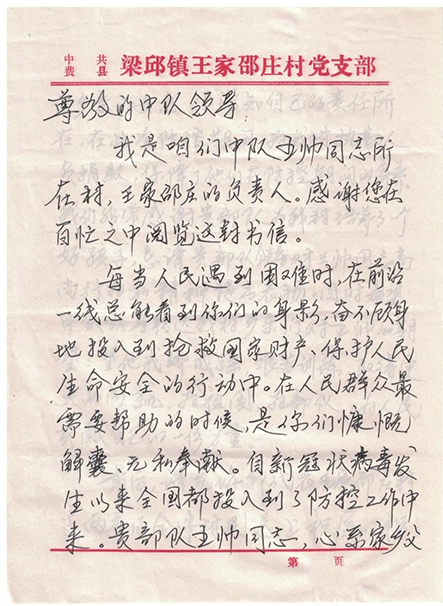 中共
费县
梁邱镇王家邵庄村党支部
尊敬的中队领导:
我是咱们中队王帅同志所
在村,王家邵庄的负责人。感谢您在
百忙之中阅览这封书信。
每当人民遇到困难时,在前沿
一线总能看到你们的身影,奋不顾身
地投入到抢救国家财产、保护人民
生命安全的行动中。在人民群众最
需要帮助的时候,是你们慷慨
解囊、无私奉献。自新冠状病毒发
生以来全国都投入到了防控工作中
来。贵部队王帅同志,心系家乡父
第 页